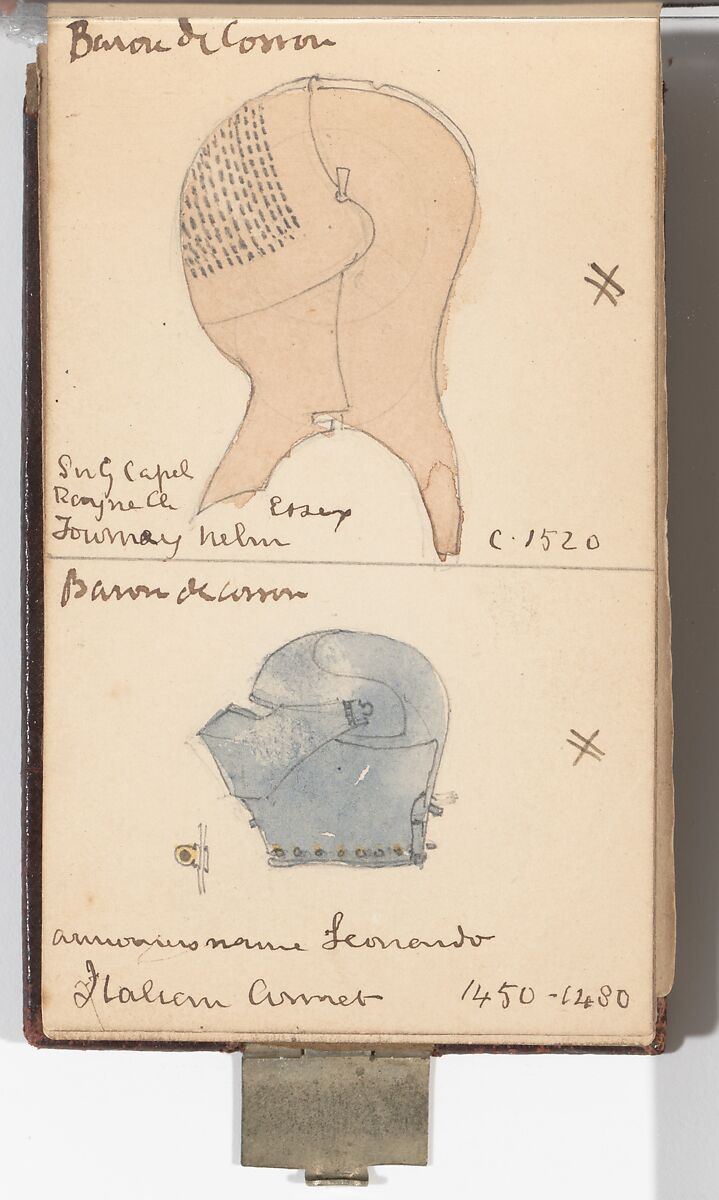 Baron de Cosson
Sir G Capel
Rayne Ch
Essex
Tournay helm
C. 1520
Baron de Cosson
armourers name Leonardo
Italian Armet
1450-1480